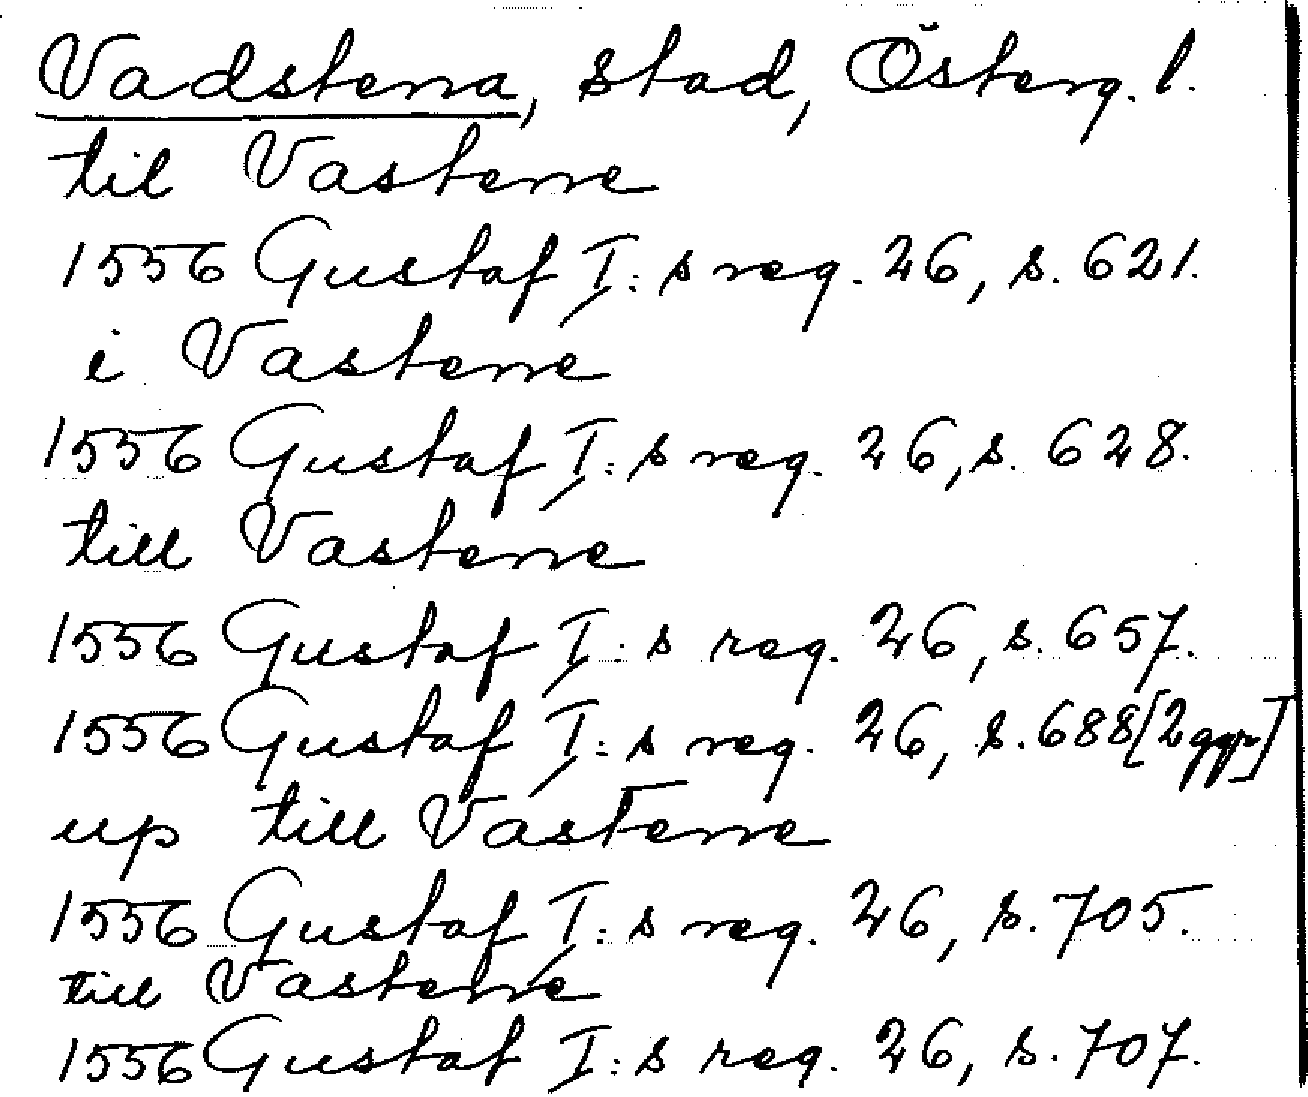 Vadstena, stad, Österg. l.
til Vastenne
1556 Gustaf I: s reg. 26, s. 621.
i Vastenne
1556 Gustaf I: s reg. 26, s. 628.
till Vastenne
1556 Gustaf I: s reg. 26, s. 657.
1556 Gustaf I: s reg. 26, s. 688 [2 ggr]
up till Vastenne
1556 Gustaf I: s reg. 26, s. 705.
till Vastenne
1556 Gustaf I: s reg. 26, s. 707.